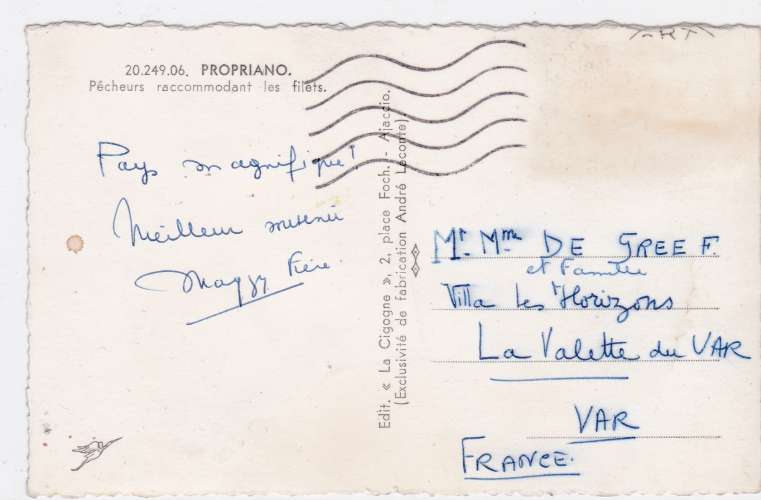 20.249.06. PROPRIANO.
Pêcheurs raccommodant les filets.
Pays magnifique!
Meilleur souvenir
Maggy
Edit. « La Cigogne », 2, place Foch. - Ajaccio.
(Exclusivité de fabrication André Leconte).
Mr. Mme DE GREEF.
et Famille
Villa les Horizons
La Valette du VAR
VAR
FRANCE.